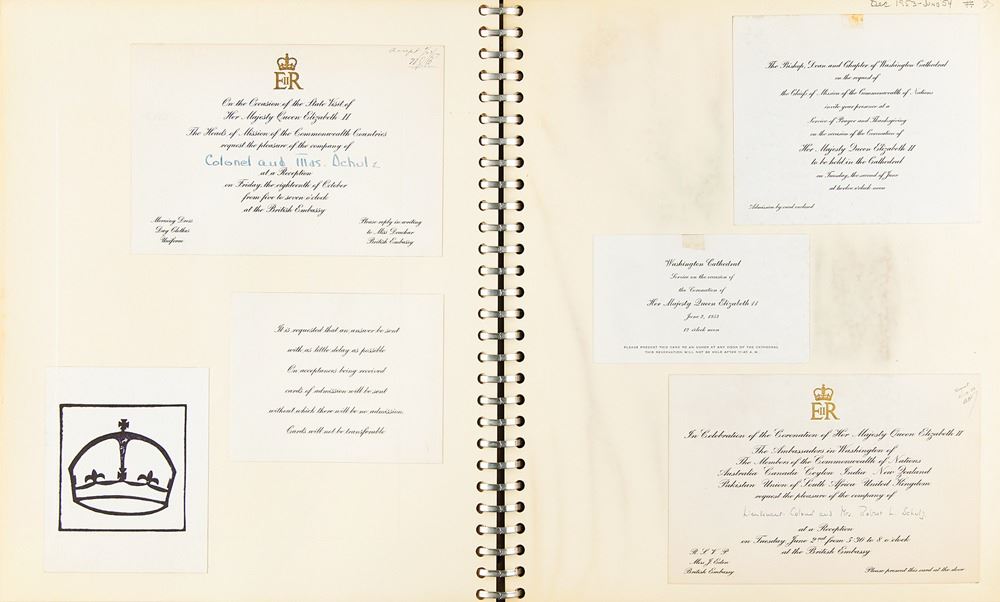 EIIR
On the Occasion of the State Visit of
Her Majesty Queen Elizabeth II
The Heads of Mission of the Commonwealth Countries
request the pleasure of the company of
Colonel and Mrs. Schulz
at a Reception
on Friday, the eighteenth of October
from five to seven o'clock
at the British Embassy
Morning Dress
Day Clothes
Uniform
Please reply in writing
to Miss
British Embassy
It is requested that an answer be sent
with as little delay as possible
On acceptances being received
cards of admission will be sent
without which there will be no admission.
Cards will not be transferable
Dec 1953-June 54
The Bishop, Dean and Chapter of Washington Cathedral
on the request of
the Chiefs of Mission of the Commonwealth of Nations
invite your presence at a
Service of Prayer and Thanksgiving
on the occasion of the Coronation of
Her Majesty Queen Elizabeth II
to be held in the Cathedral
on Tuesday, the second of June
at twelve o'clock noon
Admission by card enclosed
Washington Cathedral
Service on the occasion of
the Coronation of
Her Majesty Queen Elizabeth II
June 2, 1953
12 o'clock noon
PLEASE PRESENT THIS CARD TO AN USHER AT ANY DOOR OF THE CATHEDRAL
THIS RESERVATION WILL NOT BE HELD AFTER 11:45 A.M.
EIIR
In Celebration of the Coronation of Her Majesty Queen Elizabeth II
The Ambassadors in Washington of
The Members of the Commonwealth of Nations
Australia Canada Ceylon India New Zealand
Pakistan Union of South Africa United Kingdom
request the pleasure of the company of
Lieutenant-Colonel and Mrs. Robert L. Schulz
at a Reception
on Tuesday June 2nd from 5-30 to 8 o'clock
at the British Embassy
R.S.V.P.
Miss J. Eden
British Embassy
Please present this card at the door